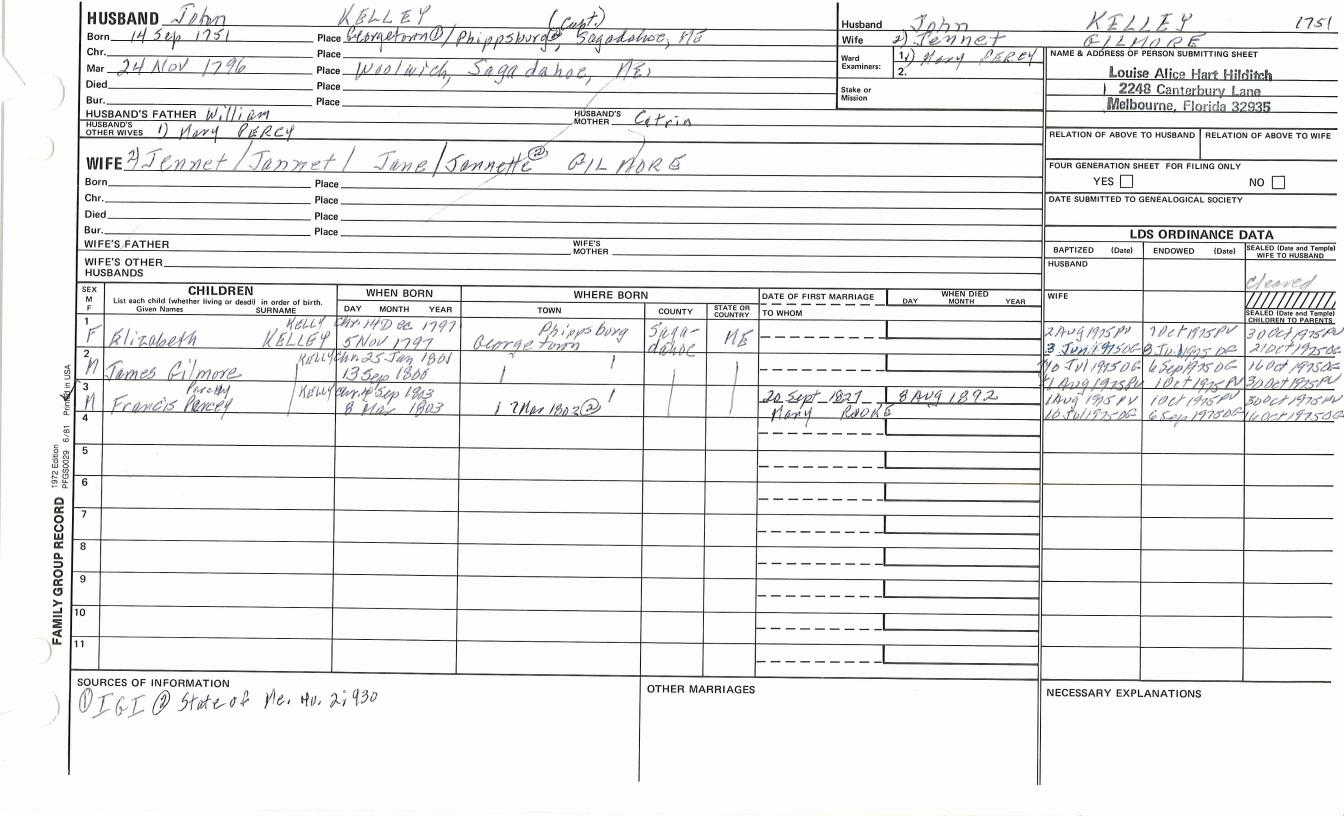 HUSBAND John KELLEY (Capt.)
Born 14 Sep 1751 Place Georgetown①/Phippsburg②, Sagadahoc, ME
Chr. Place
Mar 24 Nov 1796 Place Woolwich, Sagadahoc, ME
Died Place
Bur. Place
HUSBAND'S FATHER William HUSBAND'S MOTHER Catrin
HUSBAND'S OTHER WIVES 1) Mary PERCY
WIFE 2) Jennet/Jannet/ Jane/Jannette② GILMORE
Born Place
Chr. Place
Died Place
Bur. Place
WIFE'S FATHER WIFE'S MOTHER
WIFE'S OTHER HUSBANDS
Husband John KELLEY 1751
Wife 2) Jennet GILMORE
Ward Examiners: 1. 1) Mary PERCY
2.
Stake or Mission
NAME & ADDRESS OF PERSON SUBMITTING SHEET
Louise Alice Hart Hilditch
2248 Canterbury Lane
Melbourne, Florida 32935
RELATION OF ABOVE TO HUSBAND RELATION OF ABOVE TO WIFE
FOUR GENERATION SHEET FOR FILING ONLY
YES NO
DATE SUBMITTED TO GENEALOGICAL SOCIETY
LDS ORDINANCE DATA
BAPTIZED (Date) ENDOWED (Date) SEALED (Date and Temple) WIFE TO HUSBAND
HUSBAND
cleared
WIFE
SEALED (Date and Temple) CHILDREN TO PARENTS
SEX M F
CHILDREN
List each child (whether living or dead) in order of birth.
Given Names SURNAME
WHEN BORN
DAY MONTH YEAR
WHERE BORN
TOWN COUNTY STATE OR COUNTRY
DATE OF FIRST MARRIAGE
TO WHOM
WHEN DIED
DAY MONTH YEAR
1 KELLY Chr 14 Dec 1797 Phippsburg Saga- ME 2 Aug 1975 PV 1 Oct 1975 PV 30 Oct 1975 PV
F Elizabeth KELLEY 5 Nov 1797 Georgetown dahoc 3 Jun 1975 OG 21 Oct 1975 OG
2 KELLY Chr 25 Jan 1801 10 Jul 1975 OG 6 Sep 1975 OG 16 Oct 1975 OG
M James Gilmore 13 Sep 1800 1 Aug 1975 PV 1 Oct 1975 PV 30 Oct 1975 PV
3 KELLY Sep 1803 20 Sept 1827 8 AUG 1892 1 Aug 1975 PV 1 Oct 1975 PV 30 Oct 1975 PV
M Francis 8 Mar 1803 7 Mar 1803② Mary 10 Jul 1975 OG 6 Sep 1975 OG 16 Oct 1975 OG
4
5
6
7
8
9
10
11
FAMILY GROUP RECORD 1972 Edition PFGS0029 6/81 Printed in USA
SOURCES OF INFORMATION
① IGI ② State of Me. Hv. 2; 930
OTHER MARRIAGES
NECESSARY EXPLANATIONS